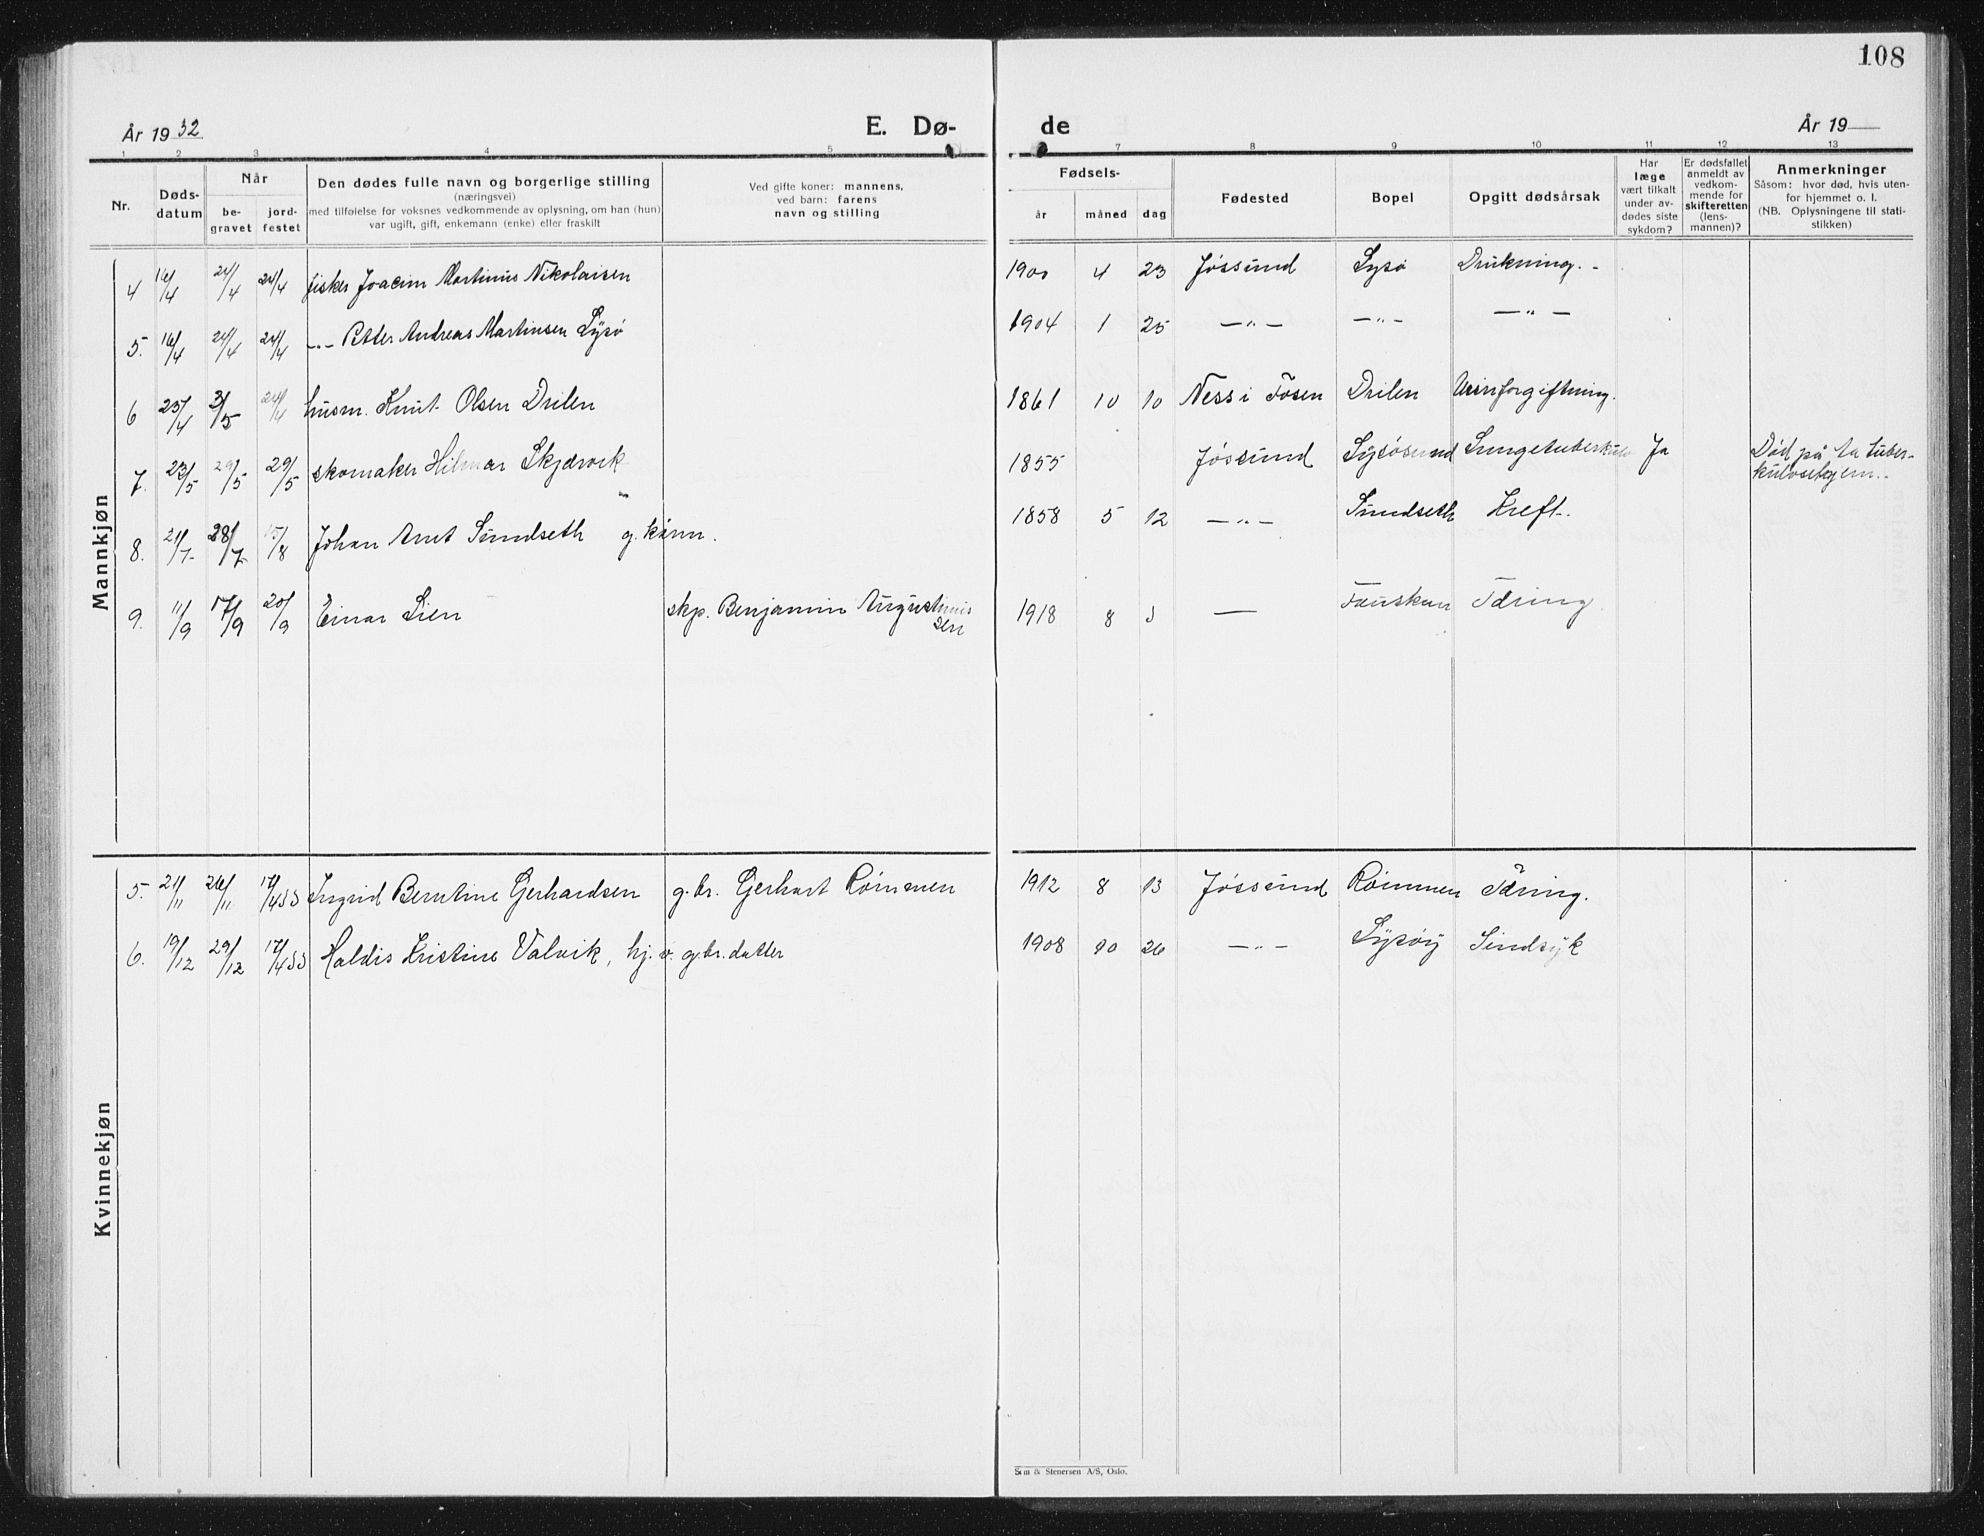 108
År 1932
E. Dø-
de
År 19
1 2 3 4 5
7 8 9 10 11 12 13
Nr.
Døds-
datum
Når
be-
gravet
jord-
festet
Den dødes fulle navn og borgerlige stilling
(næringsvei)
med tilføielse for voksnes vedkommende av oplysning, om han (hun)
var ugift, gift, enkemann (enke) eller fraskilt
Ved gifte koner: mannens,
ved barn: farens
navn og stilling
Fødsels-
år måned dag
Fødested
Bopel
Opgitt dødsårsak
Har
læge
vært tilkalt
under av-
dødes siste
sykdom?
Er dødsfallet
anmeldt av
vedkom-
mende for
skifteretten
(lens-
mannen)?
Anmerkninger
Såsom: hvor død, hvis uten-
for hjemmet o. l.
(NB. Oplysningene til stati-
stikken)
Mannkjøn
4 16/4 24/4 24/4 fisker Joacim Martinus Nikolaisen 1900 4 23 Jøssund Lysø Drukning. -
5. 16/4 24/4 24/4 -"- Petter Andreas Martinsen Lysø 1904 1 25 -"- -"- -"-
6 25/4 3/5 24/4 husm. Knut Olsen Drilen 1861 10 10 Ness i Fosen Drilen Urinforgiftning.
7. 23/5 29/5 29/5 skomaker Hilmar Skjærvik 1855 Jøssund Lysøsund Lungetuberkulo Ja Død på Aa tuber-
kulosehjem..
8. 21/7 28/7 15/8 Johan Arnt Sundseth g. kårm. 1858 5 12 -"- Sundseth Kreft.
9. 11/9 17/9 20/9 Einar Lien skp. Benjamin Augustinus
sen 1918 8 3 — Fauskan Tæring
Kvinnekjøn
5. 21/11 26/11 17/4 33 Ingrid Berntine Gerhardsen g. br. Gerhart Rømmen 1912 8 13 Jøssund Rømmen Tæring.
6. 19/12 29/12 17/4 33 Haldis Kristine Valvik, hj. v. g. br. datter 1908 10 26 -"- Lysøy Sindsyk
Sem & Stenersen A/S, Oslo.